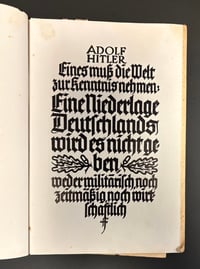 ADOLF
HITLER
Eines muß die Welt
zur Kenntnis nehmen:
Eine Niederlage
Deutschlands
wird es nicht ge
ben,
weder militärisch, noch
zeitmäßig, noch wirt-
schaftlich